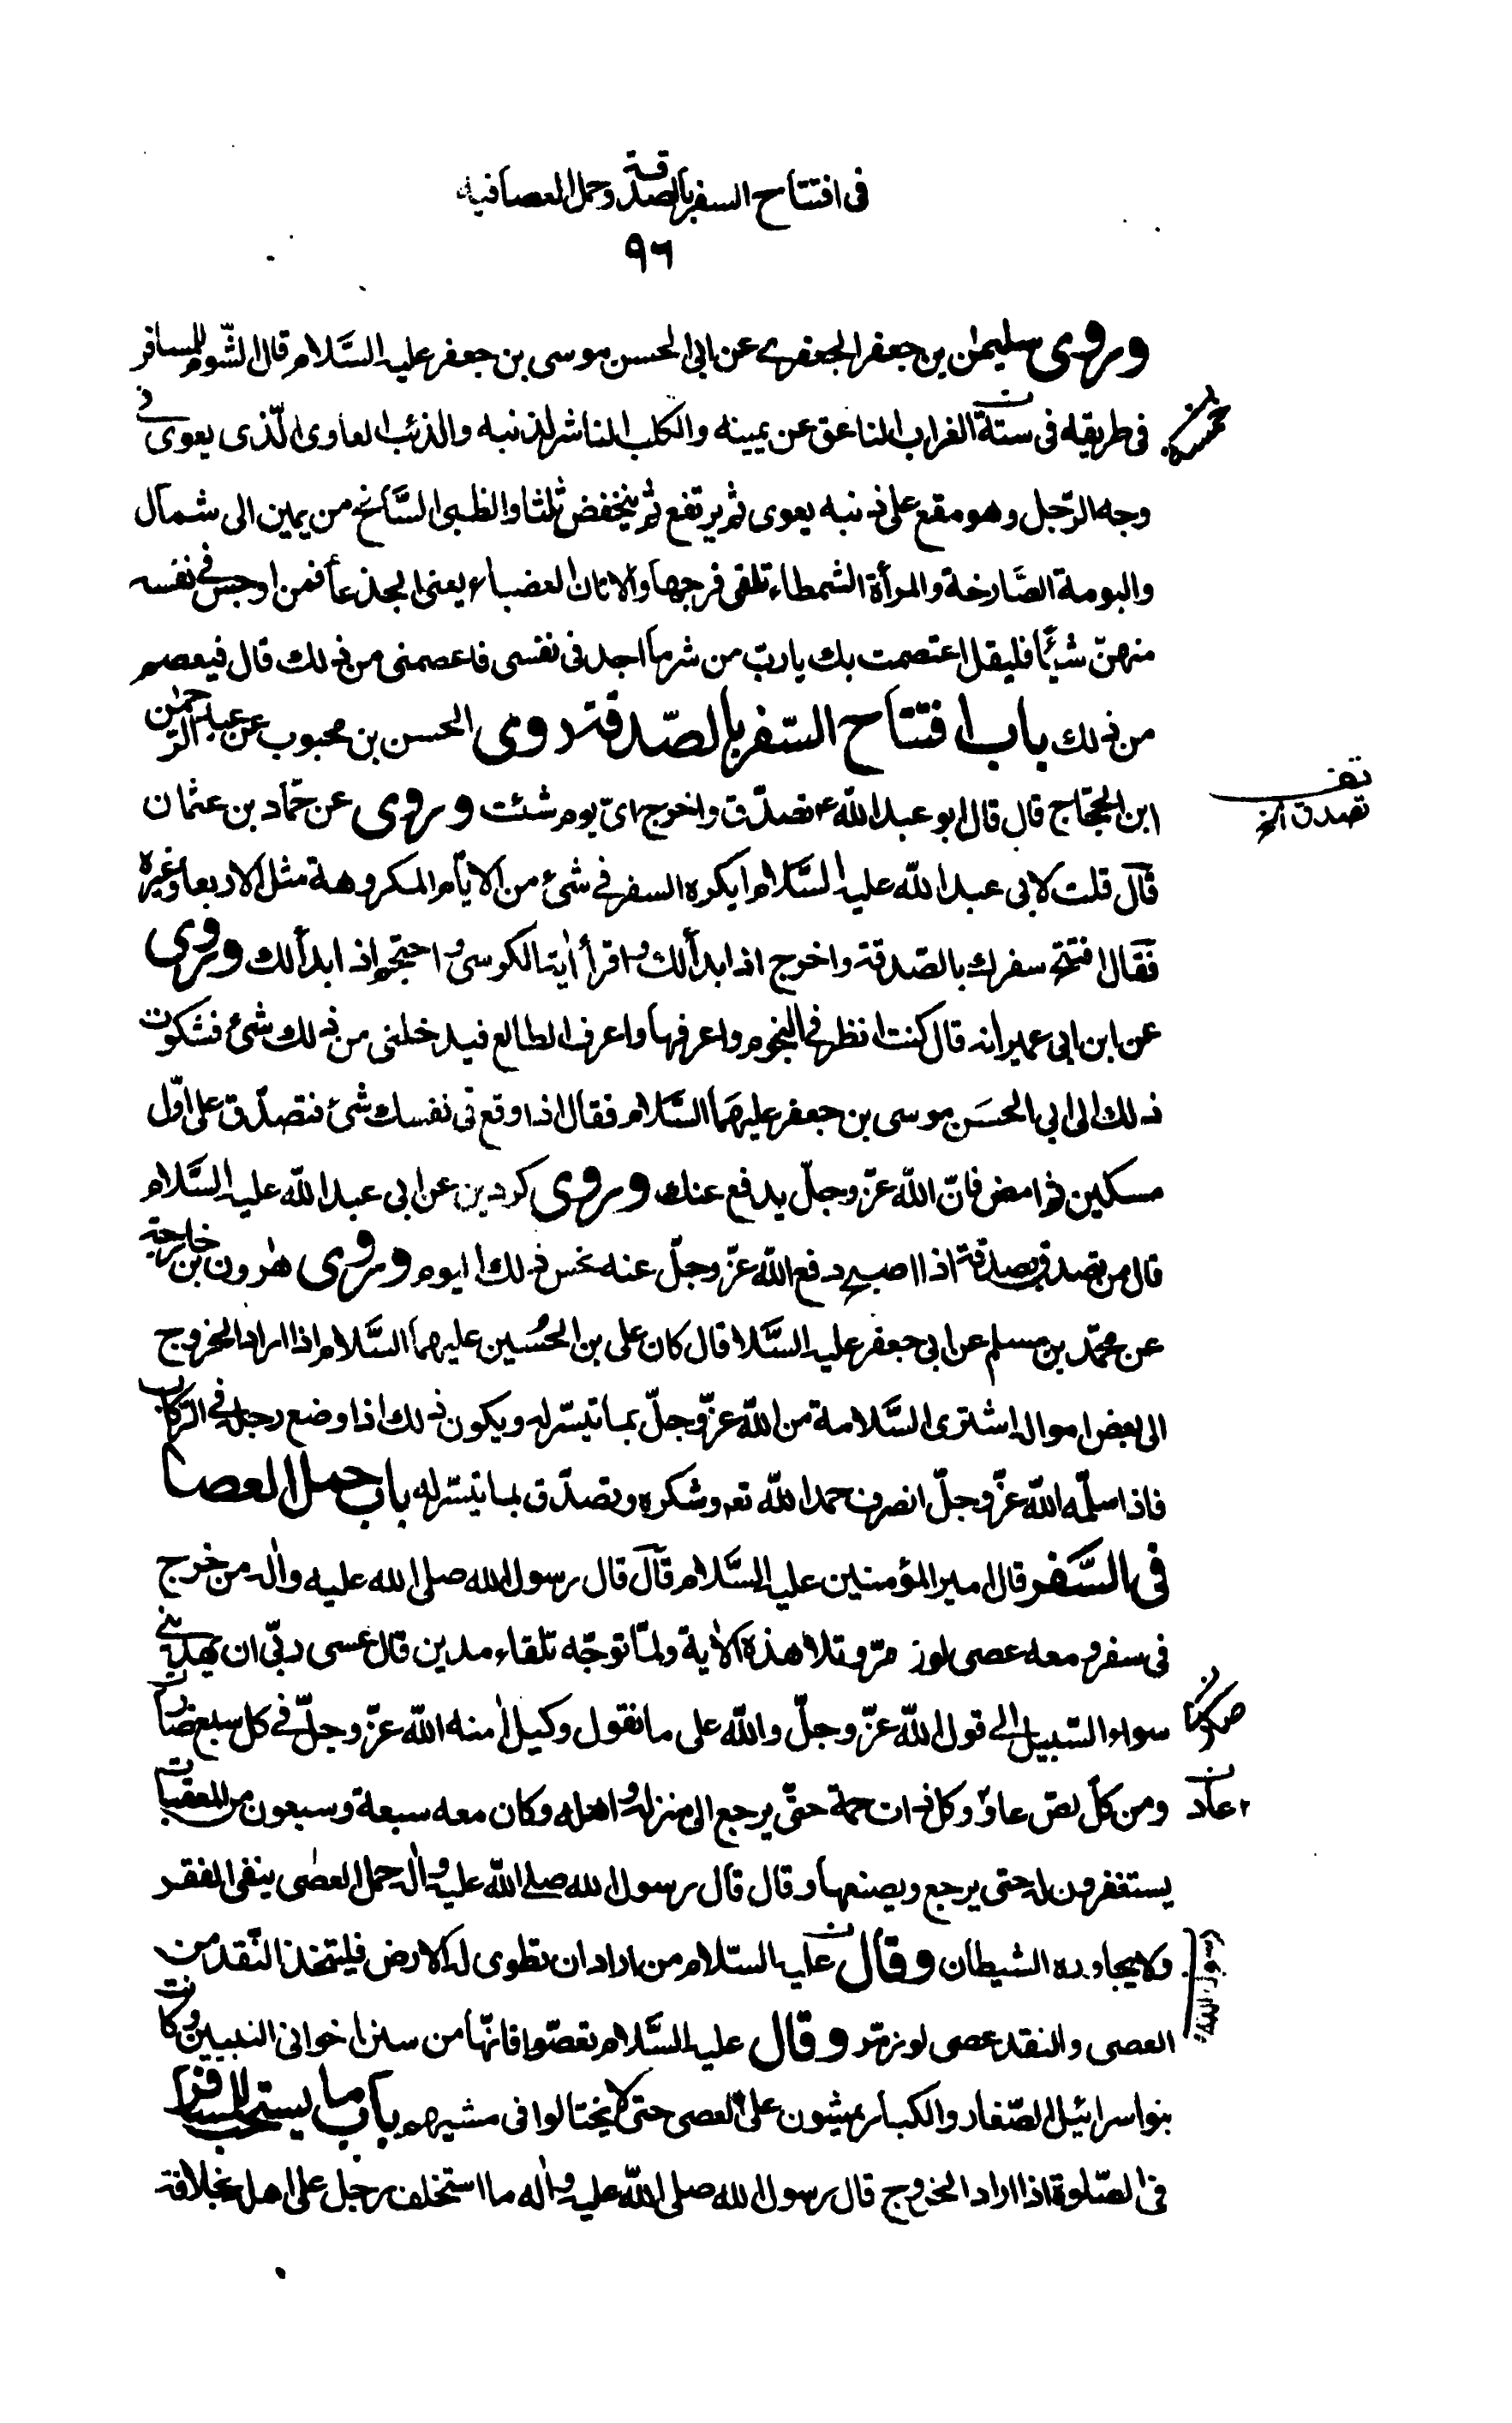 فى افتتاح السفر بالصدقة وحمل العصا فيه
٩٦
وروى سليمٰن بن جعفر الجعفرى عن ابى الحسن موسى بن جعفر عليه السَّلام قال الشّوم للمسافر
فى طريقه فى ستّة الغراب الناعق عن يمينه والكلب الناشر لذنبه والذئب العاوى الّذى يعوى فى
خمسة
وجه الرّجل وهو مقع على ذنبه يعوى ثم يرتفع ثم ينخفض ثلثا والظبى السَّانح من يمين الى شمال
والبومة الصَّارخة والمرأة الشمطاء تلقى فرجها والاتان العضباء يعنى الجذعاً فمن اوجس فى نفسه
منهنّ شيئًا فليقل اعتصمت بك يا ربّ من شر ما اجد فى نفسى فاعصمنى من ذلك قال فيعصم
من ذلك باب افتتاح السّفر بالصّدقة روى الحسن بن محبوب عن عبد الرّحمٰن
ابن الحجّاج قال قال ابو عبد اللّه ع تصدّق واخرج اىّ يوم شئت وروى عن حمّاد بن عثمان
تصدق
قال قلت لابى عبد اللّه عليه السَّلام ايكره السفر فى شئ من الايّام المكروهة مثل الاربعا وغيره
فقال افتتح سفرك بالصّدقة واخرج اذا بدأ لك واقرأ اية الكرسى واحتجم اذا بدأ لك وروى
عن ابن ابى عمير انه قال كنت انظر فى النجوم واعرفها واعرف الطالع فيدخلنى من ذلك شئ فشكوت
ذلك الى ابى الحسَن موسى بن جعفر عليهمَا السَّلام فقال اذا وقع فى نفسك شئ فتصدّق على اوّل
مسكين ثم امض فانّ اللّه عزّ وجلّ يدفع عنك وروى كردين عن ابى عبد اللّه عليه السَّلام
قال من تصدق بصدقة اذا اصبح دفع اللّه عزّ وجلّ عنه نحس ذلك اليوم وروى هٰرون بن خارجة
عن محمّد بن مسلم عن ابى جعفر عليه السَّلا قال كان على بن الحُسين عليهما السَّلام اذا اراد الخروج
الى بعض امواله اشترى السَّلامة من اللّه عزّ وجلّ بما تيسّر له ويكون ذلك اذا وضع رجله فى الرّكاب
فاذا سلّمه اللّه عزّ وجلّ انصرف حمد اللّه تعـ وشكره وتصدّق بما تيسّر له باب حمل العصا
فى السَّفر قال امير المؤمنين عليه السَّلام قال قال رسول الله صلى الله عليه واٰله من خرج
فى سفر ومعه عصى لوز مرّ وتلا هذه الاٰية ولمّا توجّه تلقاء مدين قال عسى ربّى ان يهدينى
سواء السّبيل الى قول اللّه عزّ وجلّ واللّه على ما نقول وكيل اٰمنه اللّه عزّ وجلّ فى كل سبع ضار
ومن كلّ لصّ عادٍ وكل ذات حمة حتّى يرجع الى منزله واهله وكان معه سبعة وسبعون من المعقبات
عاد
يستغفرون له حتى يرجع ويضعها وقال قال رسول الله صلى اللّه عليه واٰله حمل العصٰى ينفى الفقر
ولا يجاوره الشيطان وقال عليه السّلام من اراد ان تطوى له الارض فليتخذ النّقد من
العصى والنقد عصى لوز مرّ وقال عليه السَّلام تعصّوا فانّها من سنن اخوانى النبيين وكانت
بنو اسرائيل الصّغار والكبار يمشون على العصى حتى لا يختالوا فى مشيهم باب ما يستحب للمسافر
فى الصّلوة اذا اراد الخروج قال رسول الله صلى اللّه عليه واٰله ما استخلف رجل على اهله بخلافة